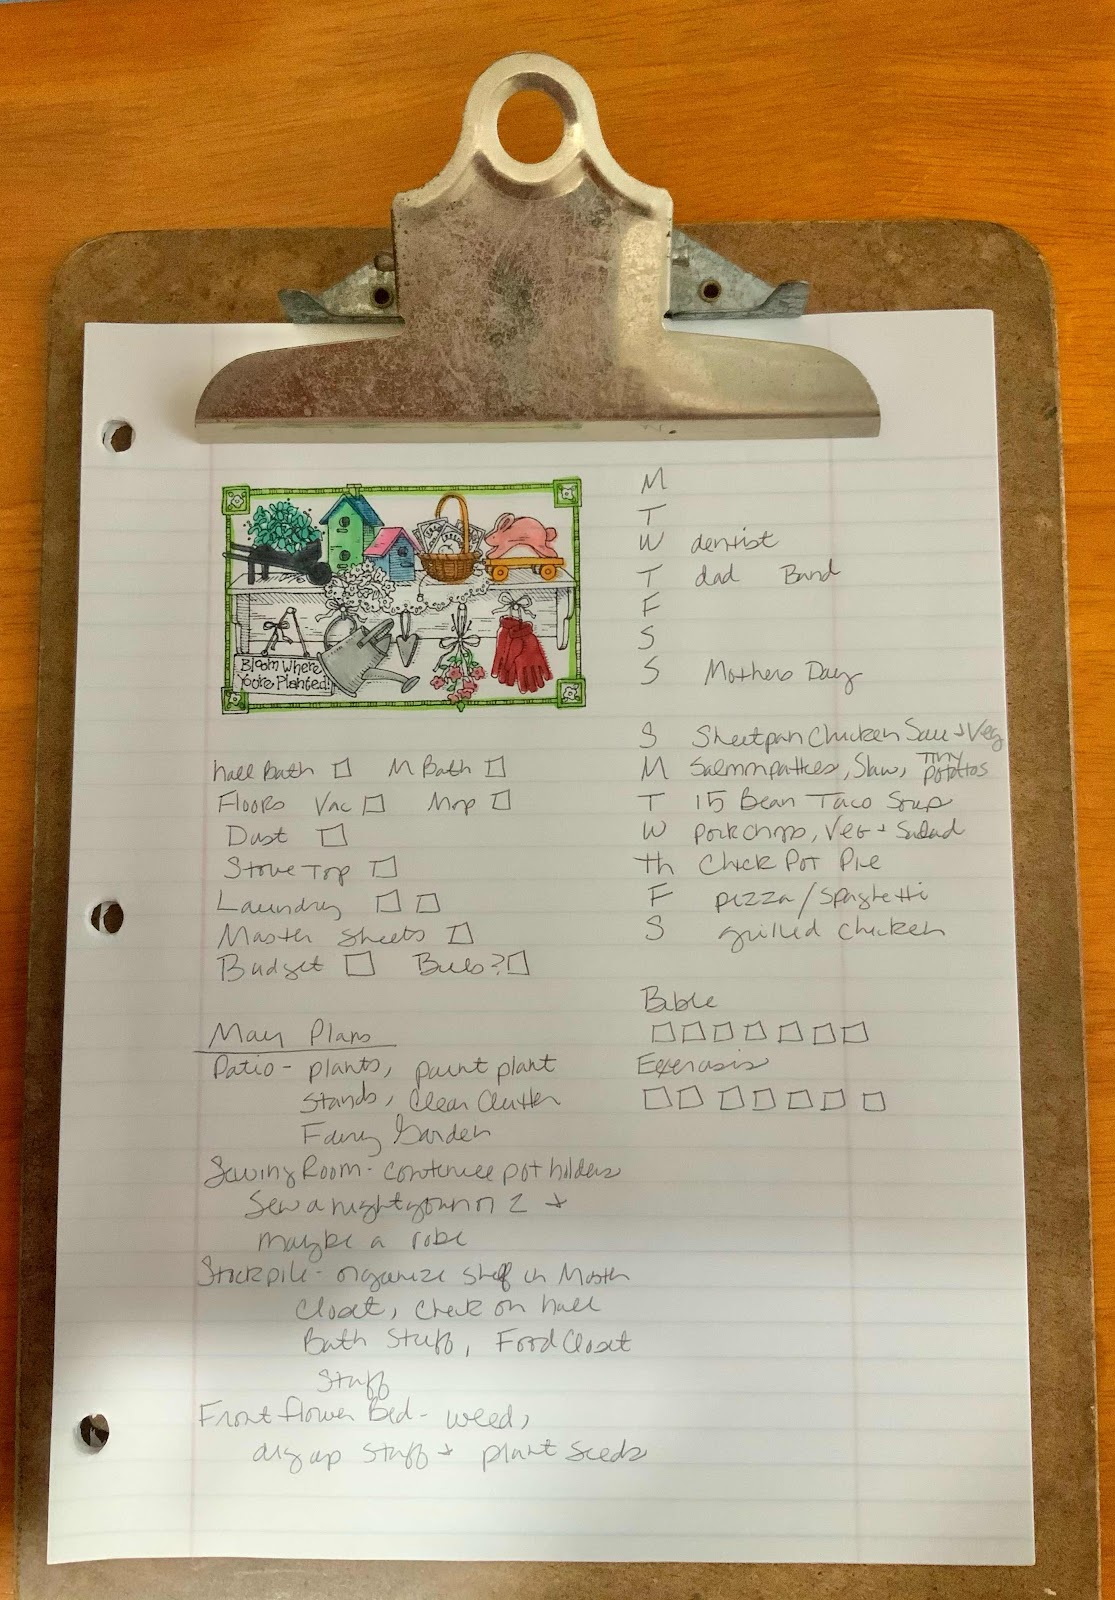 Bloom Where
You're Planted!
M
T
W dentist
T dad Band
F
S
S Mothers Day
hall Bath M Bath
Floors Vac Mop
Dust
Stove Top
Laundry
Master Sheets
Budget
S Sheetpan Chicken Sau + Veg
M Salmon patties, Slaw, Tiny Potatoes
T 15 Bean Taco Soup
W pork chops, Veg + Salad
Th Chick Pot Pie
F pizza/spaghetti
S grilled chicken
Bible
Exerasis
May Plans
Patio - plants, paint plant
Stands, Clean Clutter
Fairy Garden
Sewing Room - continue pot holders
Sew a nightgown or 2 +
maybe a robe
Stockpile - organize shelf in Master
Closet, check on hall
Bath Stuff, Food Closet
Stuff
Front flower Bed - weed,
dig up stuff + plant seeds